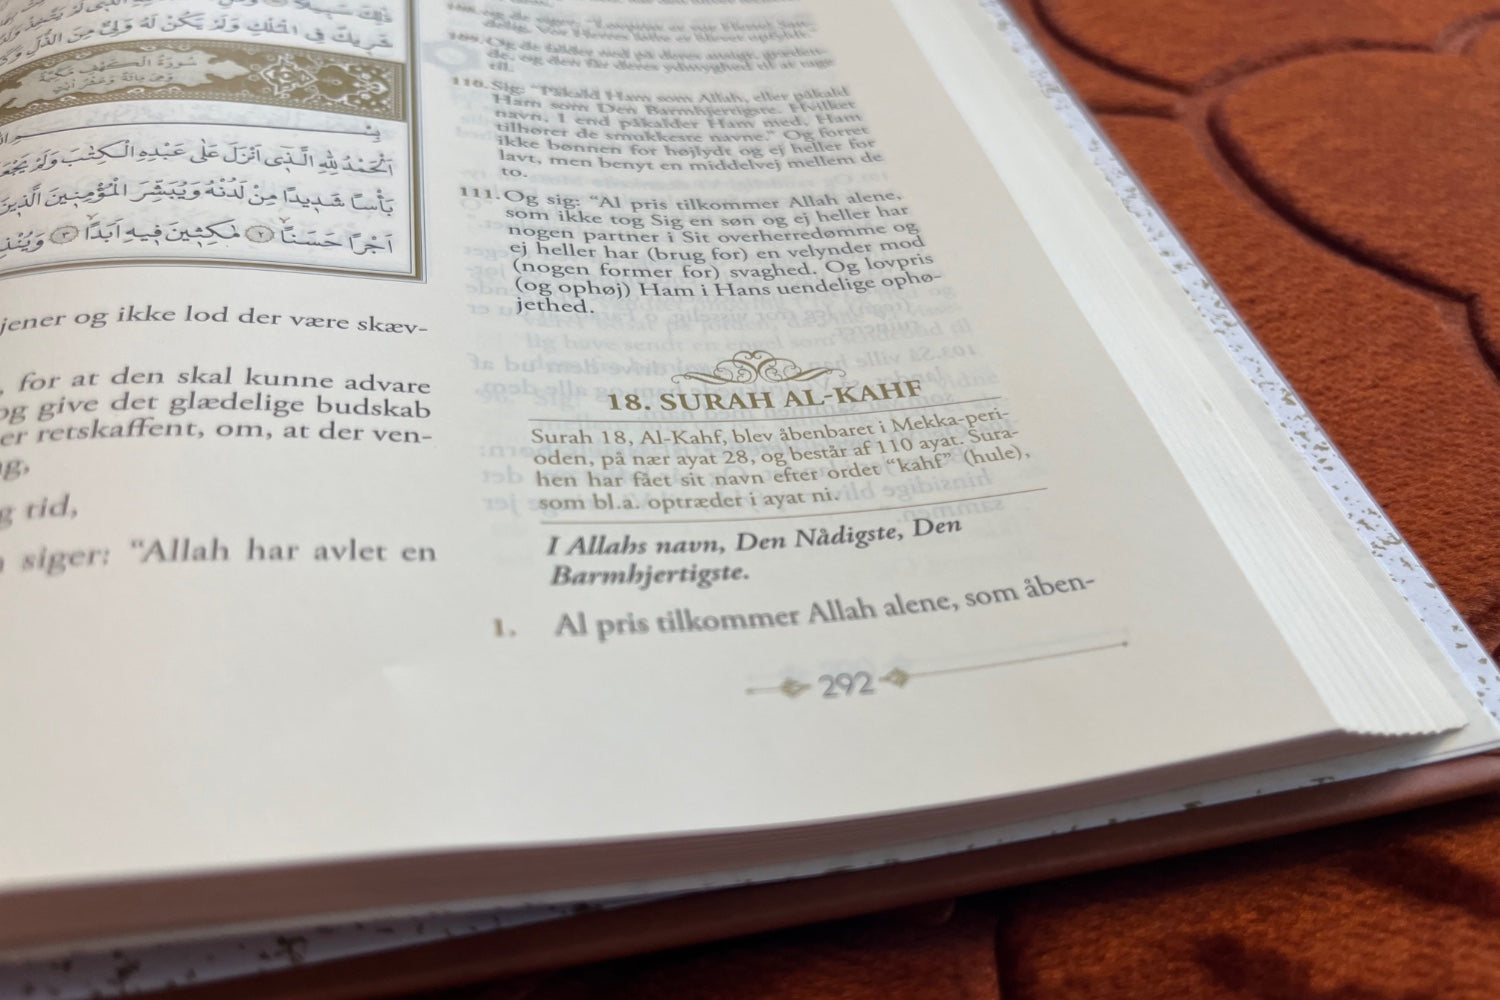 شَرِيكٌ فِي الْمُلْكِ وَلَمْ يَكُنْ لَهُ وَلِيٌّ مِنَ الذُّلِّ
سُورَةُ الْكَهْفِ مَكِّيَّةٌ
اَلْحَمْدُ لِلّٰهِ الَّذٖى اَنْزَلَ عَلٰى عَبْدِهِ الْكِتَابَ وَلَمْ يَجْعَلْ
بَأْسًا شَدٖيدًا مِنْ لَدُنْهُ وَيُبَشِّرَ الْمُؤْمِنٖينَ الَّذٖينَ
اَجْرًا حَسَنًا ٢ مَاكِثٖينَ فٖيهِ اَبَدًا ٣
jener og ikke lod der være skæv-
, for at den skal kunne advare
og give det glædelige budskab
er retskaffent, om, at der ven-
g tid,
siger: “Allah har avlet en
109. Og de falder ned på deres ansigt, græden-
de, og den får deres ydmyghed til at tage
til.
110. Sig: “Påkald Ham som Allah, eller påkald
Ham som Den Barmhjertigste. Hvilket
navn, I end påkalder Ham med, Ham
tilhører de smukkeste navne.” Og forret
ikke bønnen for højlydt og ej heller for
lavt, men benyt en middelvej mellem de
to.
111. Og sig: “Al pris tilkommer Allah alene,
som ikke tog Sig en søn og ej heller har
nogen partner i Sit overherredømme og
ej heller har (brug for) en velynder mod
(nogen former for) svaghed. Og lovpris
(og ophøj) Ham i Hans uendelige ophø-
jethed.
18. SURAH AL-KAHF
Surah 18, Al-Kahf, blev åbenbaret i Mekka-peri-
oden, på nær ayat 28, og består af 110 ayat. Sura-
hen har fået sit navn efter ordet “kahf” (hule),
som bl.a. optræder i ayat ni.
I Allahs navn, Den Nådigste, Den
Barmhjertigste.
1. Al pris tilkommer Allah alene, som åben-
292